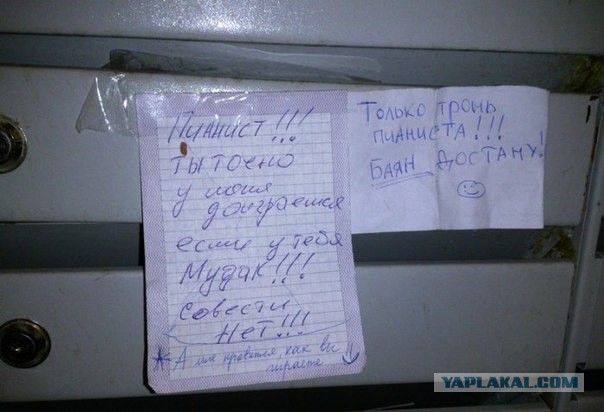 Пианист!!!
ты точно
у меня
доиграешся
если у тебя
Мудак!!!
Совести
Нет!!!
* А мне нравится, как вы
играете
Только тронь
пианиста!!!
Баян достану!
YAPLAKAL.COM